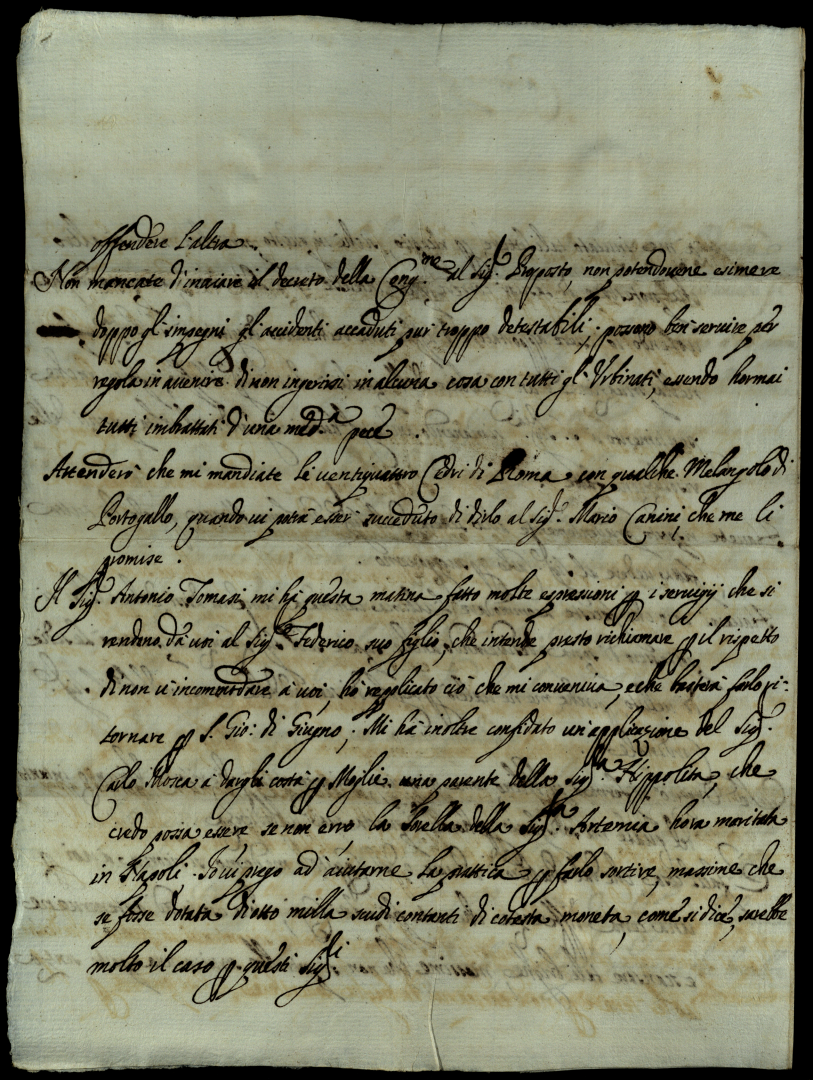 offendere l'altra.
Non mancate d'inviare il decreto della Cong.ne al Sig.r Preposto, non potendovene esimere
doppo gl'impegni gl'accidenti accaduti pur troppo detestabili. possono ben servire per
regola in avenire di non ingerirsi in alcuna cosa con tutti gl'Urbinati, essendo hormai
tutti imbrattati d'una med.a pece.
Attenderò che mi mandiate le ventiquattro Cedri di Roma con qualche Melangolo di
Portogallo, quando vi potrà esser succeduto di dirlo al Sig.r Mario Canini che me li
promise.
Il Sig.r Antonio Tomasi mi hà questa matina fatto molte espressioni p i servigij che si
rendono da voi al Sig.r Federico suo figlio, che intende presto richiamare p il rispetto
di non v'incommodare à voi, hò replicato ciò che mi conveniva, e che basterà farlo ri-
tornare p S. Gio: di Giugno; Mi hà inoltre confidato un'applicazione del Sig.r
Carlo Mosca à dargli costà p Moglie una parente della Sig.ra Hippolita, che
credo possa essere se non erro la sorella della Sig.ra Artemia hora maritata
in Napoli. Io vi prego ad aiutarne la prattica p farlo sortire, massime che
se fosse dotata di otto milla scudi contanti di cotesta moneta, come si dice, sarebbe
molto il caso p questi Sig.ri